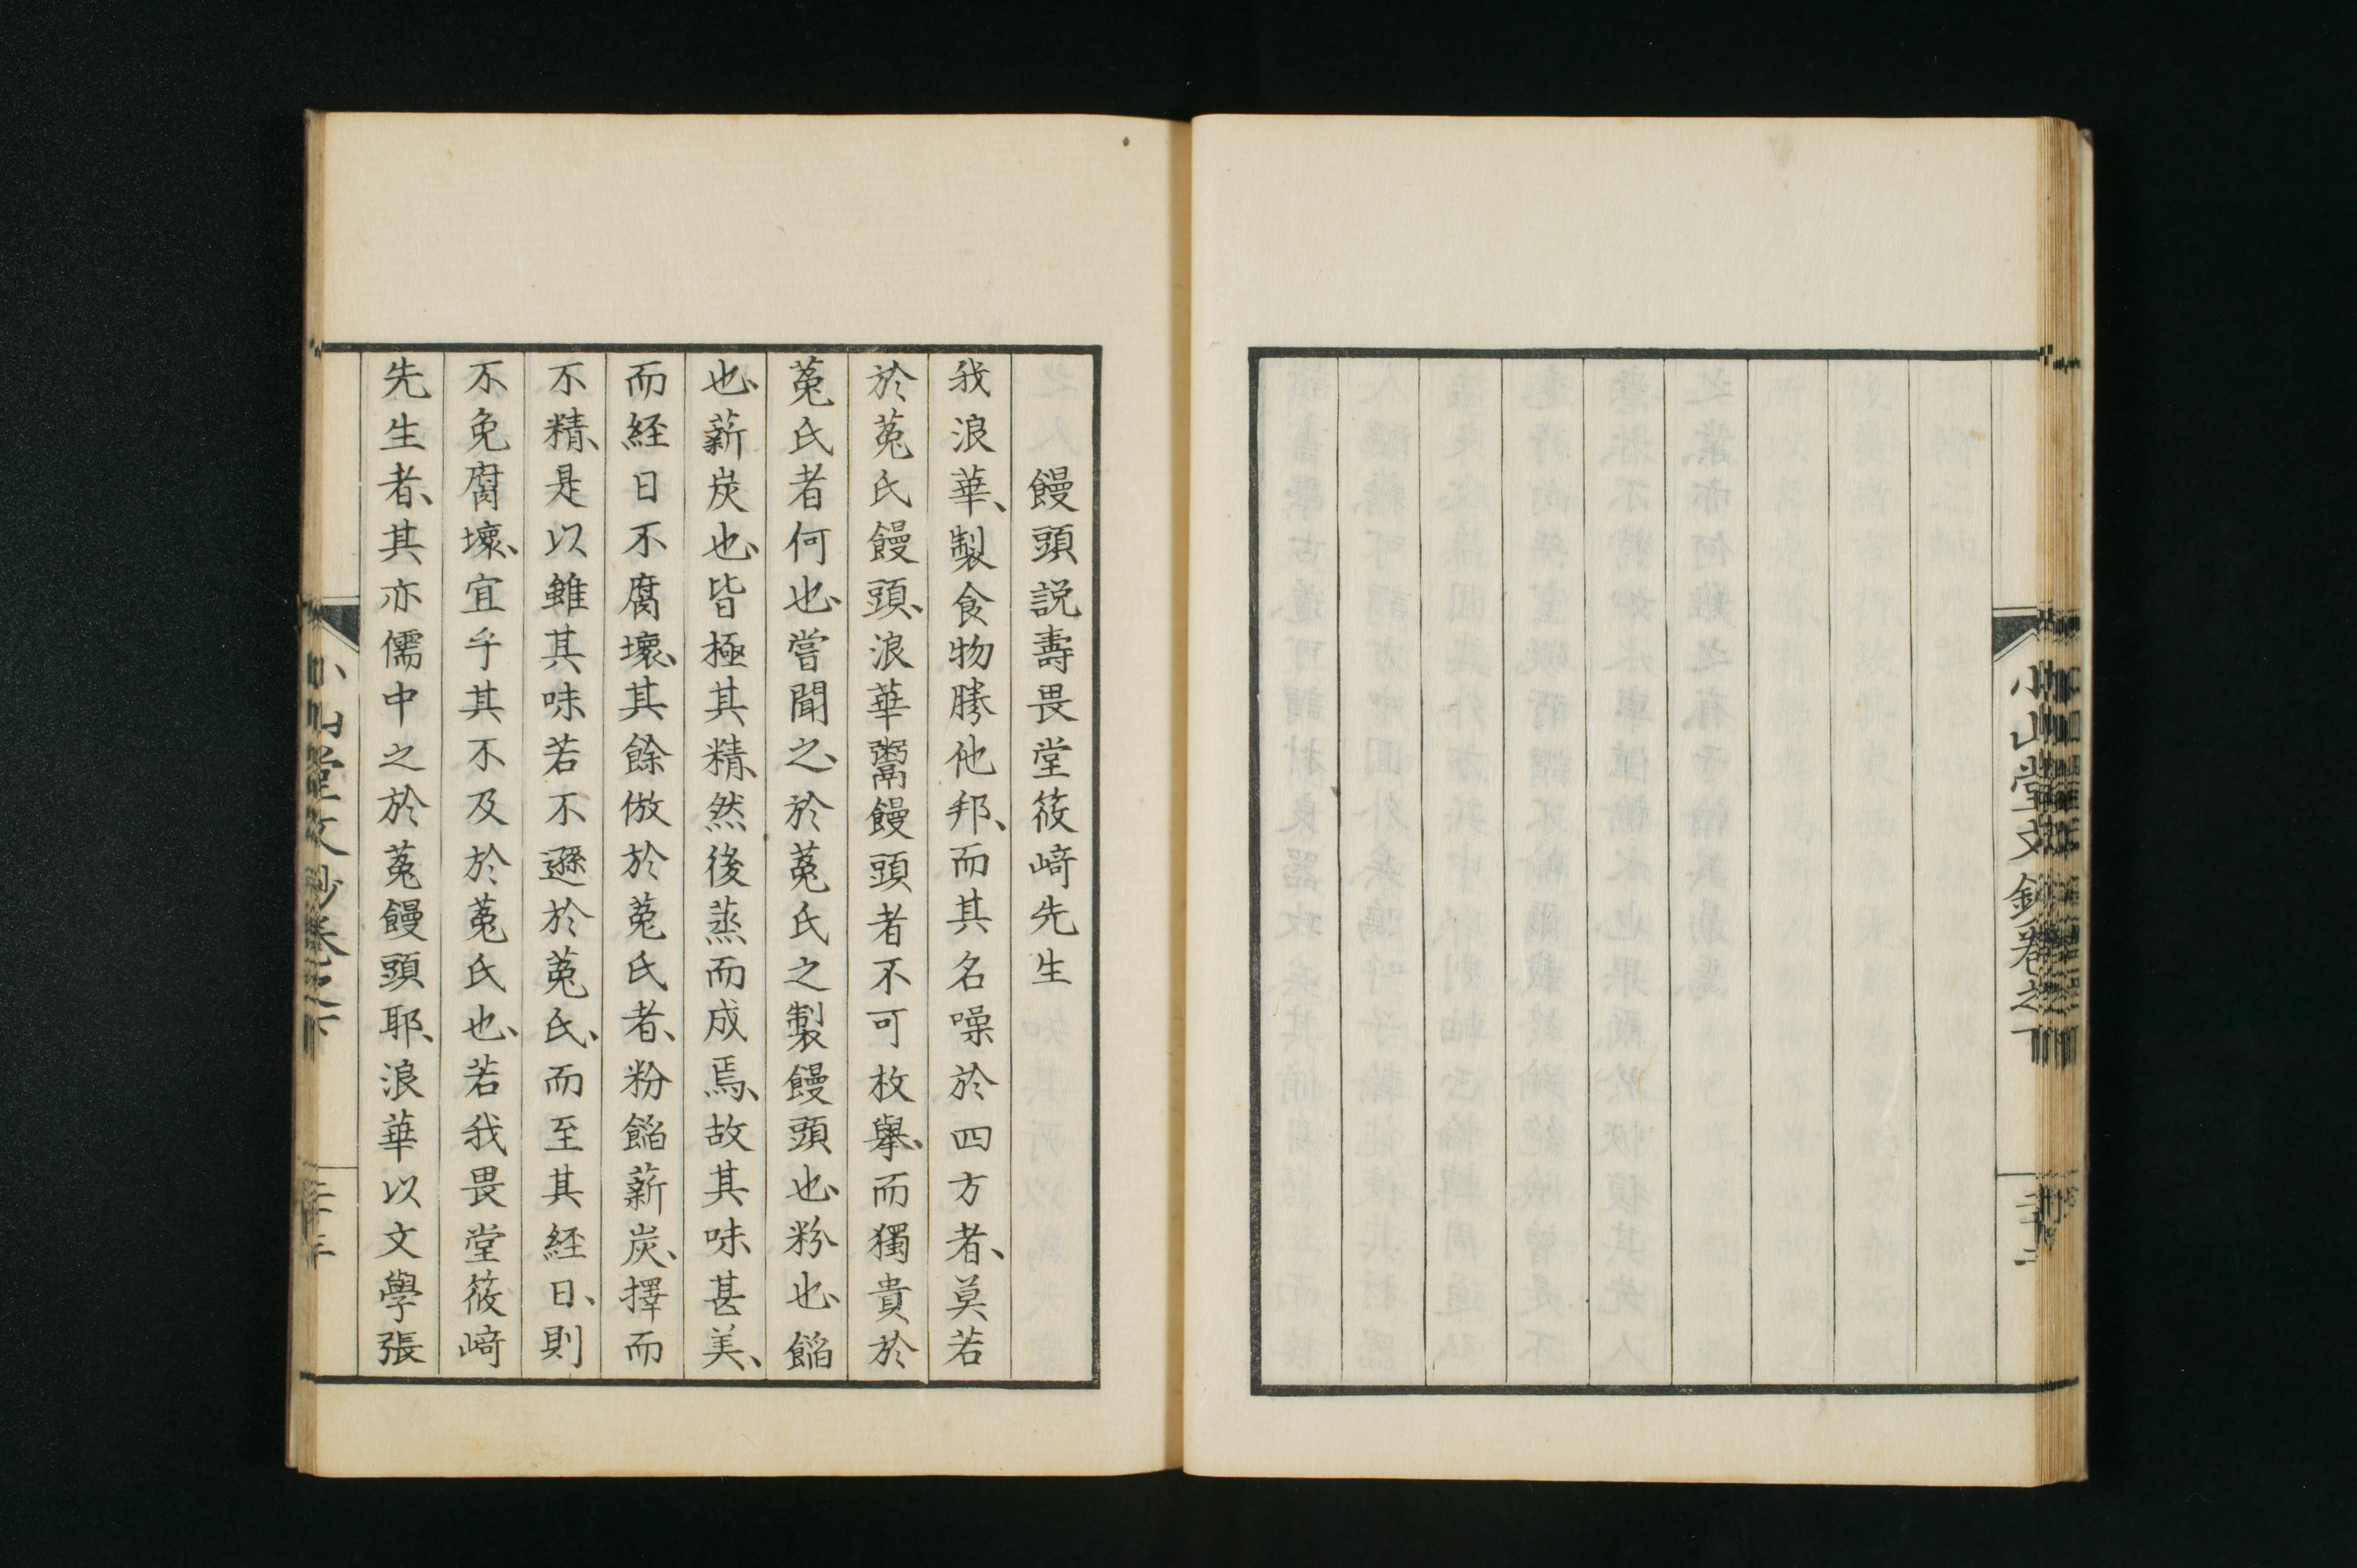 小山堂文鈔卷之下
饅頭説壽畏堂筱﨑先生
我浪華、製食物勝他邦、而其名噪於四方者、莫若
於菟氏饅頭、浪華鬻饅頭者不可枚擧、而獨貴於
菟氏者何也、嘗聞之、於菟氏之製饅頭也、粉也、餡
也、薪炭也、皆極其精、然後蒸而成焉、故其味甚美、
而経日不腐壞、其餘倣於菟氏者、粉餡薪炭、擇而
不精、是以雖其味若不遜於菟氏、而至其経日、則
不免腐壞、宜乎其不及於菟氏也、若我畏堂筱﨑
先生者、其亦儒中之於菟饅頭耶、浪華以文學張
小山堂文鈔卷之下